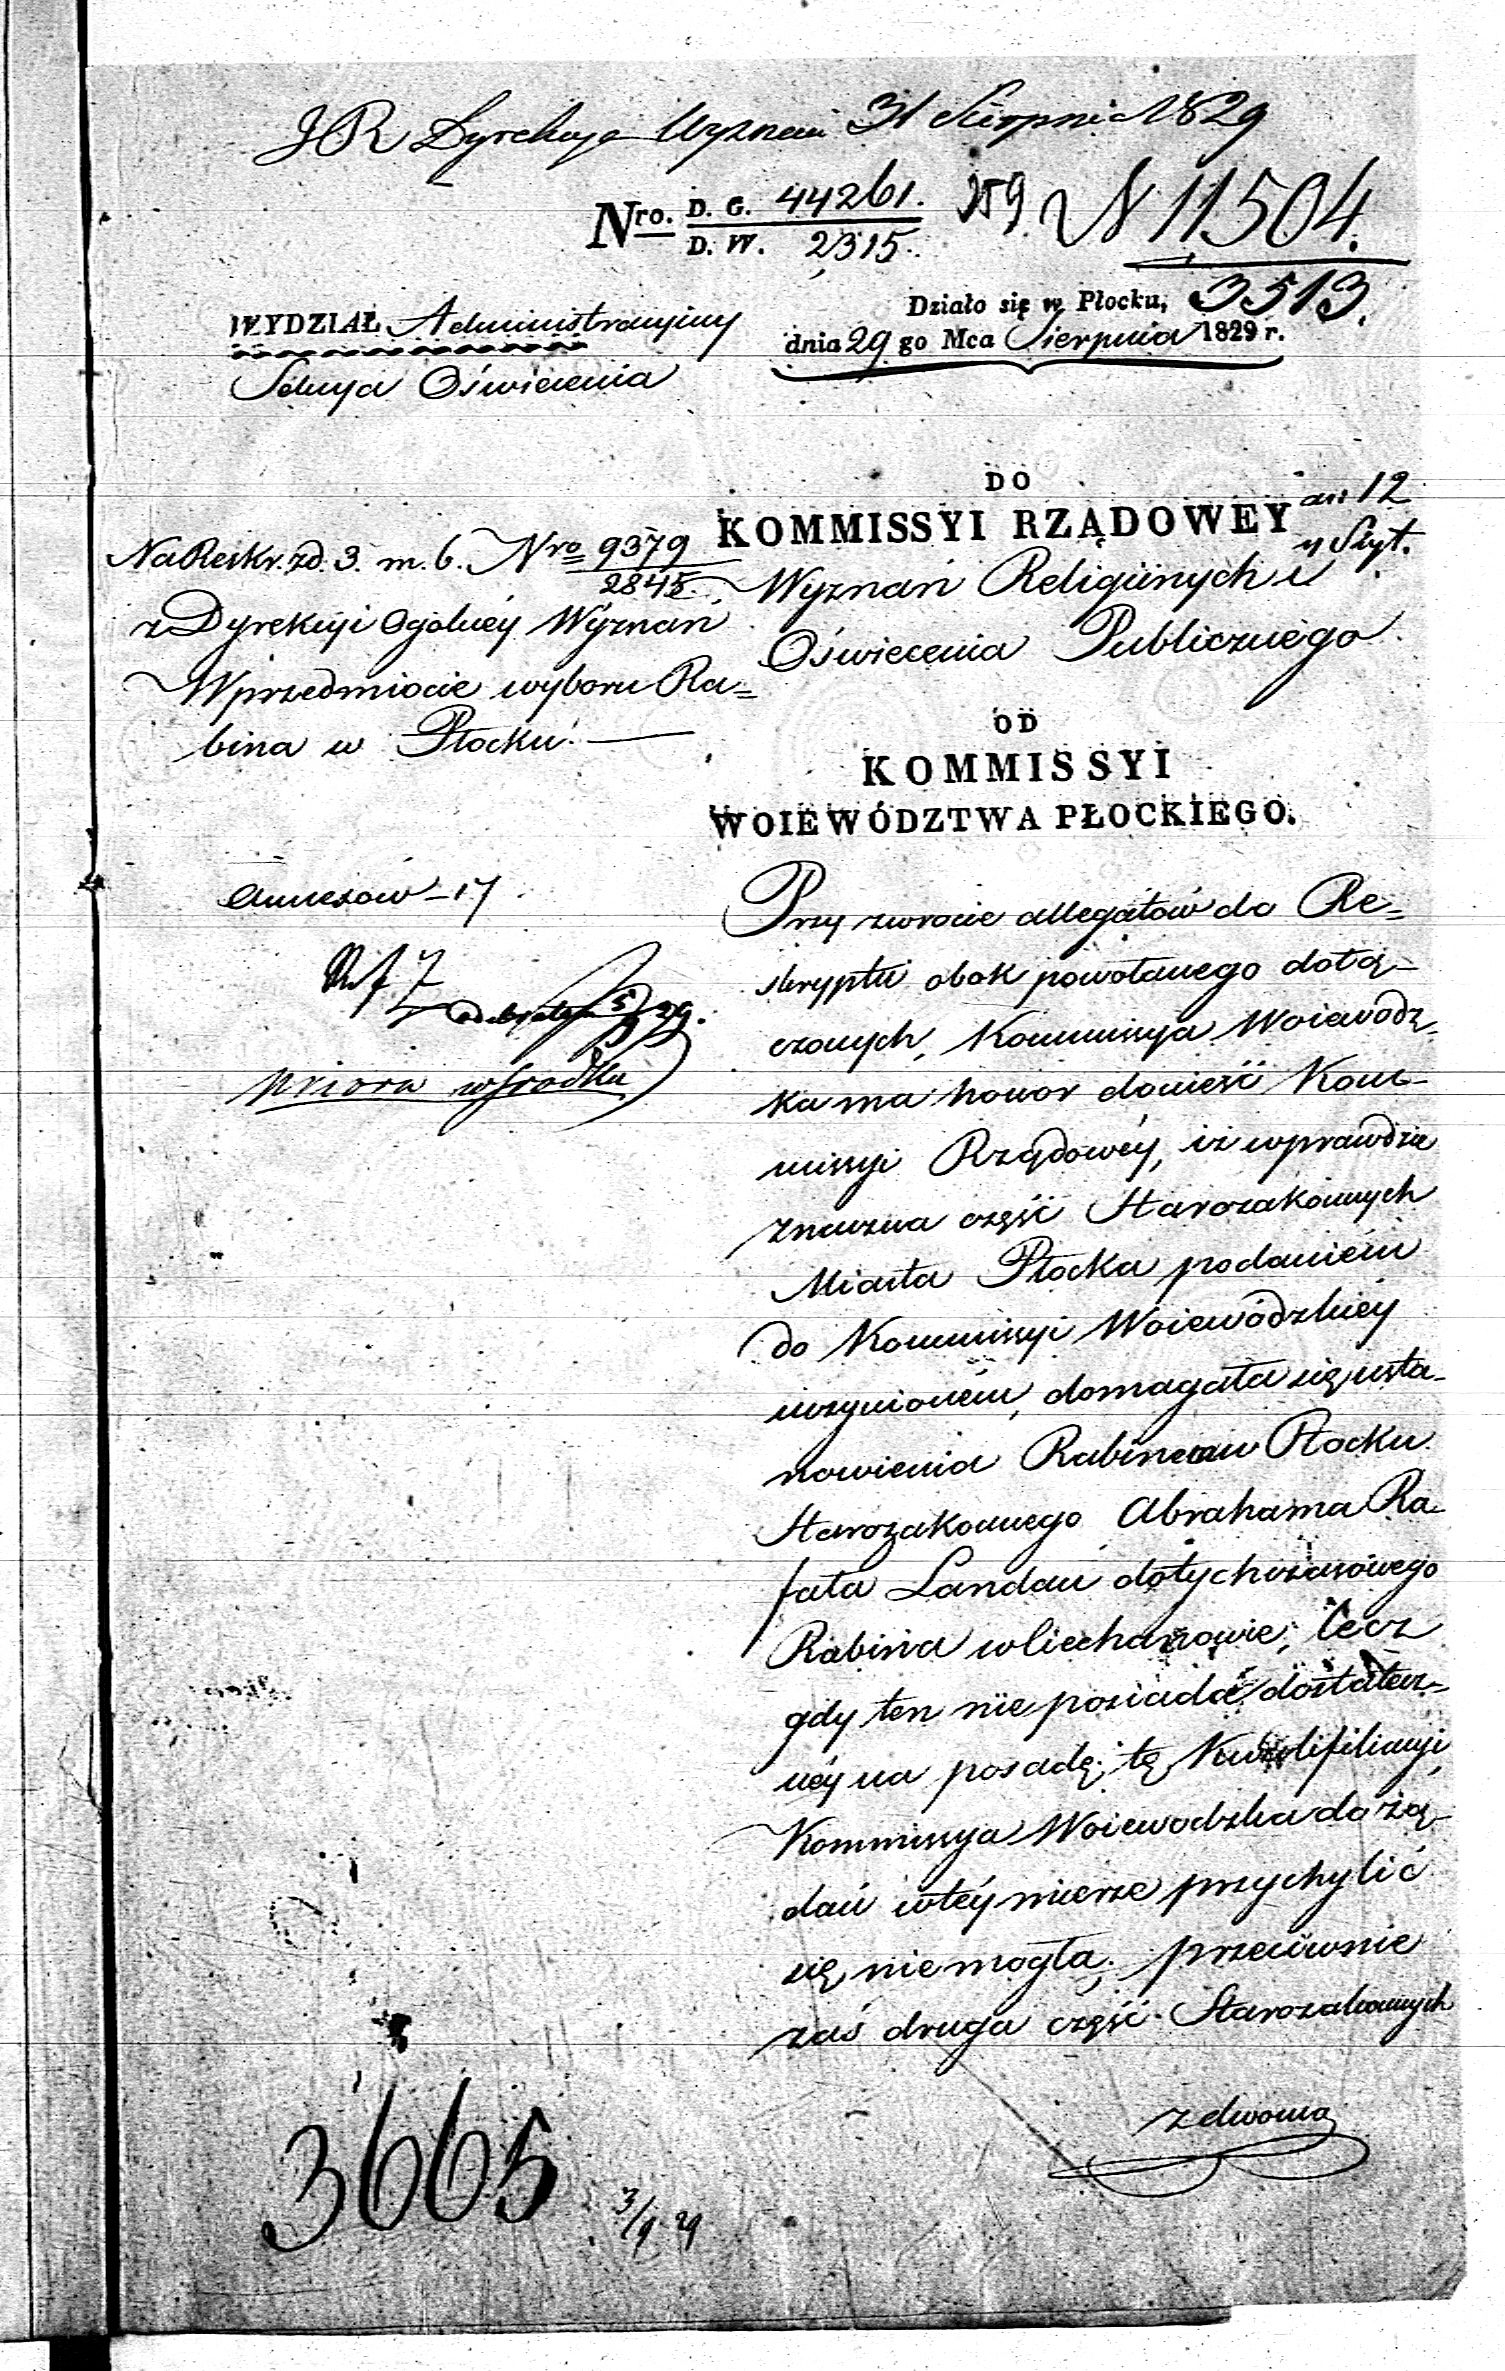 Dyrekcya Wyznań 31 Sierpnia 1829
Nro. D. G. 44261. 259. N 11504.
D. W. 2315. 3513.
Działo się w Płocku,
dnia 29 go Mca Sierpnia 1829 r.
WYDZIAŁ Administracyiny
Sekcya Oświecenia
DO
KOMMISSYI RZĄDOWEY
Wyznań Religiinych i
Oświecenia Publicznego
an: 12
y Szyt.
Na Reskr. z d. 3. m. b. Nro 9379
2845.
z Dyrekcyi Ogólney Wyznań
W przedmiocie wyboru Ra=
bina w Płocku.
OD
KOMMISSYI
WOIEWÓDZTWA PŁOCKIEGO.
Annexów - 17
odebrałem 5/9 29.
wśrodku
Przy zwrocie allegatów do Re=
skryptu obok powołanego dołą=
czonych, Kommissya Woiewódz=
ka ma honor donieść Kom=
missyi Rządowéy, iż wprawdzie
znaczna część Starozakonnych
Miasta Płocka podaniem
do Kommissyi Woiewódzkiéy
uczynioném, domagała się usta=
nowienia Rabinem w Płocku
Starozakonnego Abrahama Ra=
fała Landau dotychczasowego
Rabina w Ciechanowie; lecz
gdy ten nie posiada dostatecz=
néy na posadę tę Kwalifikacyi,
Kommissya Woiewodzka do żą=
dań w téy mierze przychylić
się nie mogła; przeciwnie
zaś druga część Starozakonnych
z dwoma
3665
3/9 29